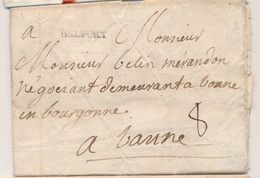 a Monsieur
BELFORT
Monsieur belin mérandon
négociant demeurant a beaune
en bourgonne
a baune 8